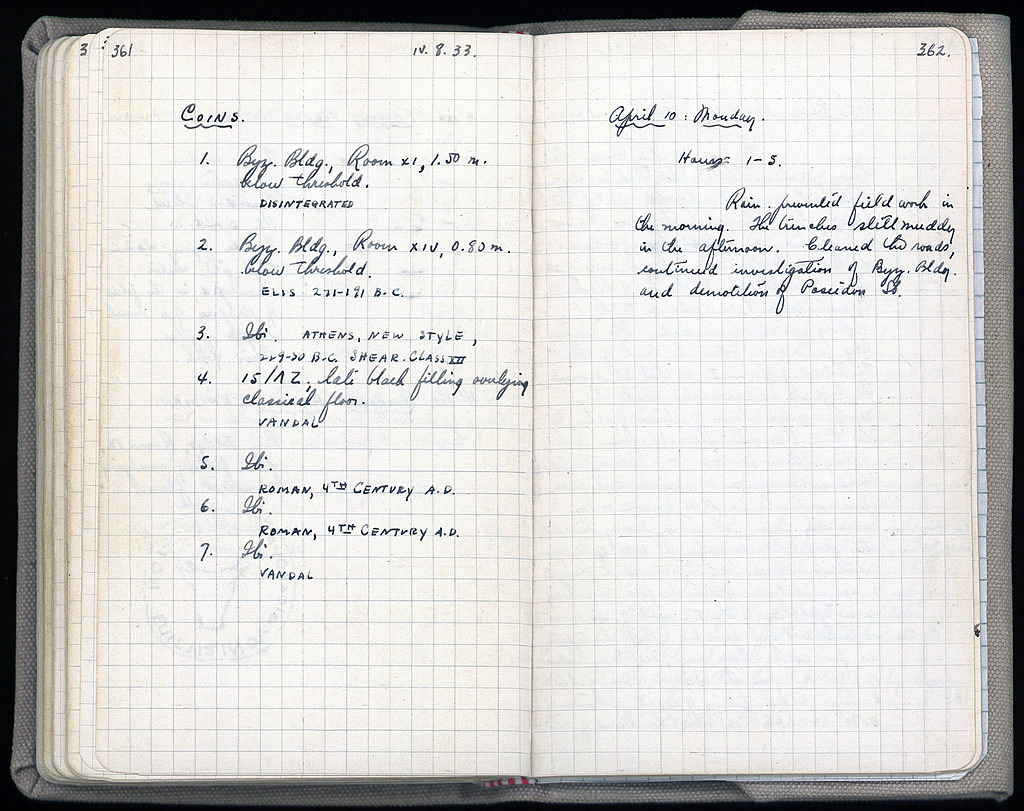 3
361
IV. 8. 33.
COINS.
1. Byz. Bldg., Room XI, 1.50 m.
below threshold.
DISINTEGRATED
2. Byz. Bldg., Room XIV, 0.80 m.
below threshold.
ELIS 271-191 B.C.
3. Ibi. ATHENS, NEW STYLE,
229-30 B.C. SHEAR. CLASS XII
4. 15/ΛΖ, late black filling overlying
classical floor.
VANDAL
5. Ibi.
ROMAN, 4TH CENTURY A.D.
6. Ibi.
ROMAN, 4TH CENTURY A.D.
7. Ibi.
VANDAL
362.
April 10: Monday.
Hours 1-5.
Rain prevented field work in
the morning. The trenches still muddy
in the afternoon. Cleaned the roads,
continued investigation of Byz. Bldg.
and demolition of Poseidon St.